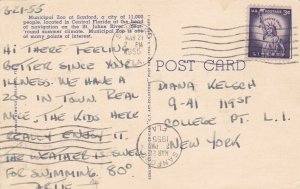 3-21-55
Municipal Zoo at Sanford, a city of 11,000
people, located in Central Florida at the head
of navigation on the St. Johns River. Year-
'round summer climate. Municipal Zoo is one
of many points of interest.
HI THERE FEELING
BETTER SINCE YOUR
ILLNESS. WE HAVE A
ZOO IN TOWN REAL
NICE. THE KIDS HERE
REALLY ENJOY IT.
THE WEATHER IS SWELL
FOR SWIMMING. 80°
POST CARD
DIANA
9-41 119 ST
COLLEGE PT. L.I.
NEW YORK
3¢
LIBERTY
SANFORD
MAR 21
PM
1955
FLA.